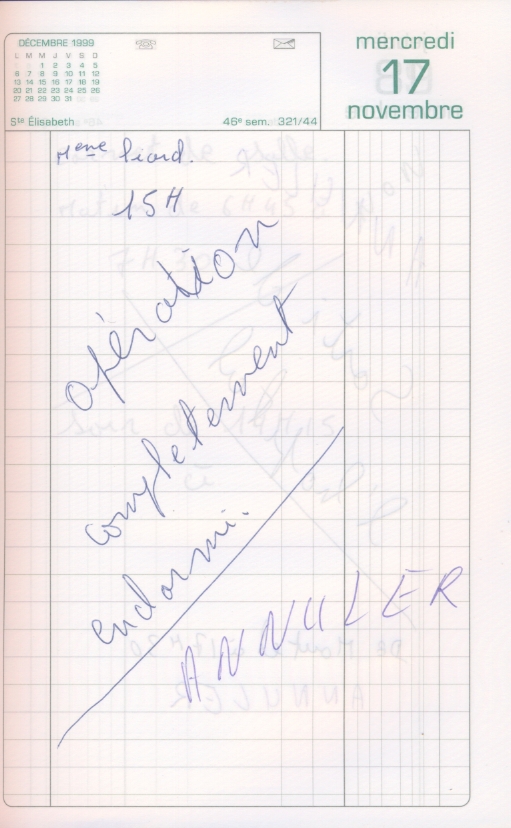 DÉCEMBRE 1999
L M M J V S D
1 2 3 4 5
6 7 8 9 10 11 12
13 14 15 16 17 18 19
20 21 22 23 24 25 26
27 28 29 30 31
Ste Élisabeth
46e sem. 321/44
mercredi
17
novembre
Meme
15H
opération
completement
endormi.
ANNULER